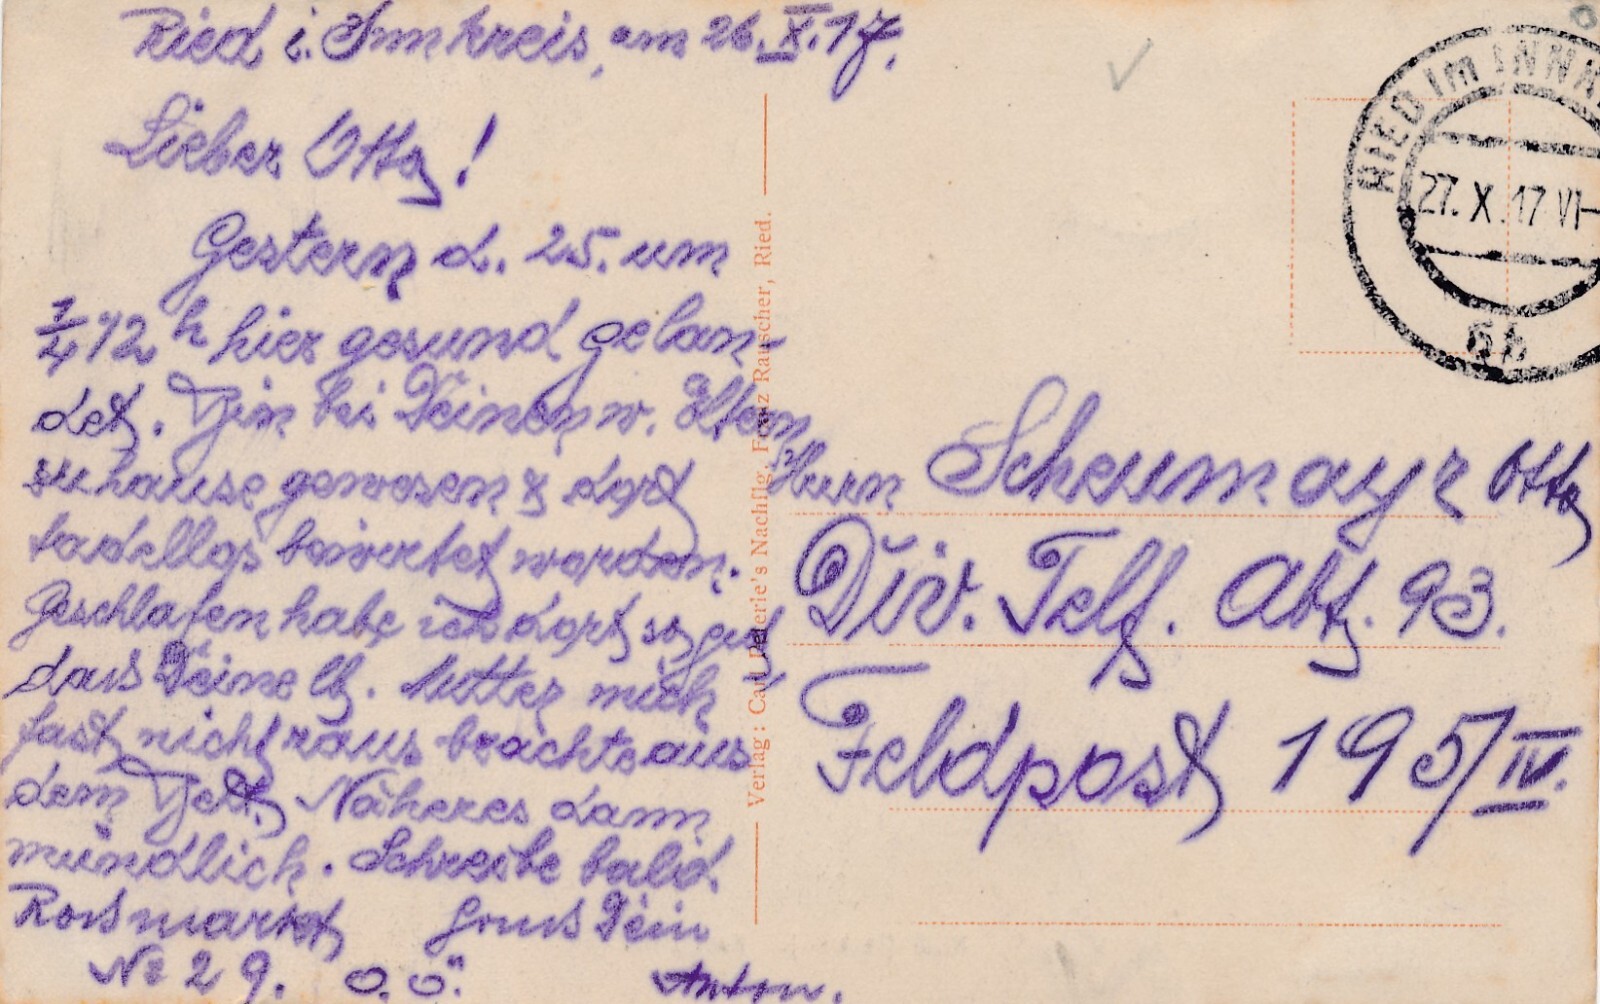 Ried i. Innkreis, am 26. X. 17.
Lieber Otto!
Gestern d. 25. um
1/4 12 h hier gesund gelan-
det. Bin bei Deinen w. Eltern
zuhause gewesen & dort
tadellos bewirtet worden.
Geschlafen habe ich dort so gut
dass Deine lb. Mutter mich
fast nicht raus brachte aus
dem Bett. Näheres dann
mündlich. Schreibe bald.
Rossmarkt Gruss Dein
No 29. O.Ö. Anton.
Verlag: Carl Nachflg, Franz Rauscher, Ried.
RIED IM INNK
27. X. 17 VI-
Herrn Scheumayr Otto
Div. Telf. Abt. 93.
Feldpost 195/IV.